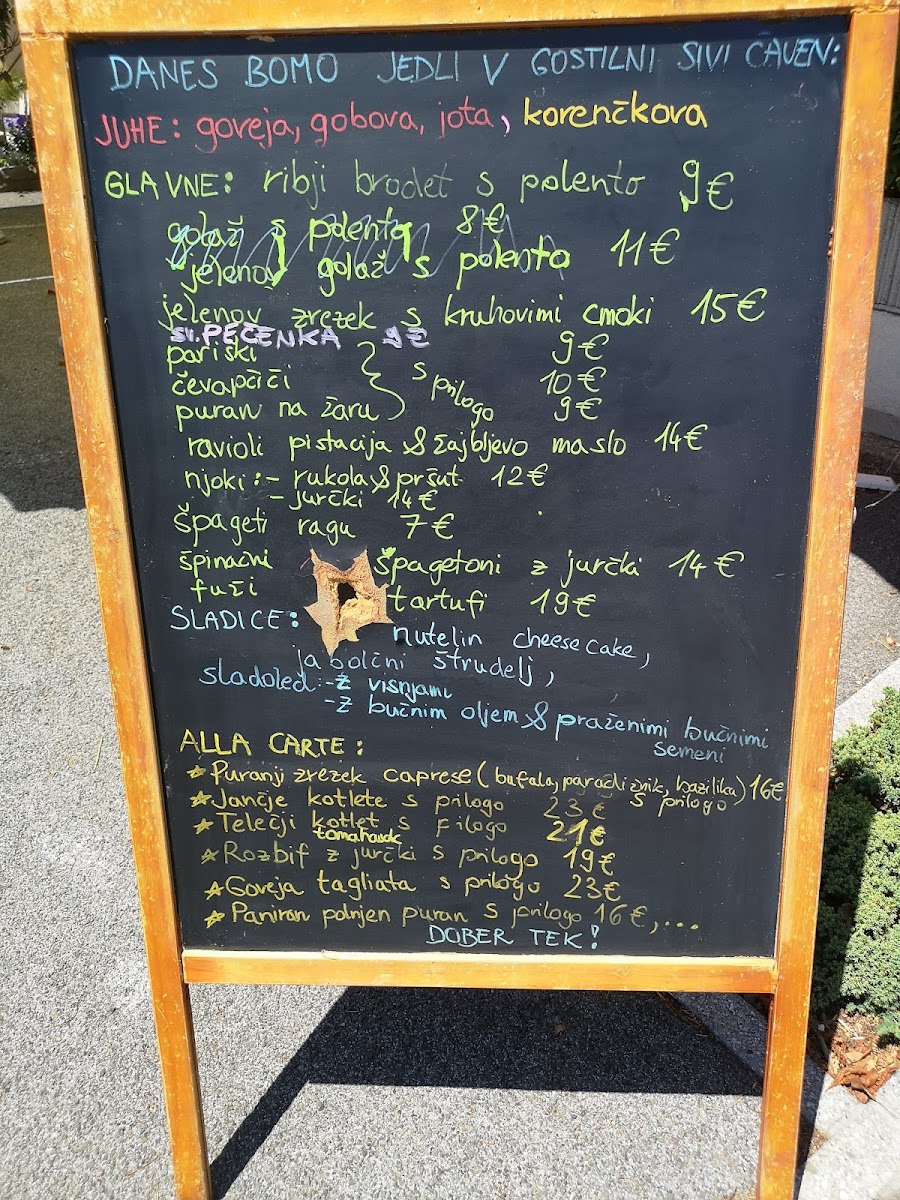 DANES BOMO JEDLI V GOSTILNI SIVI ČAVEN:
JUHE: goveja, gobova, jota, korenčkova
GLAVNE: ribji brodet s polento 9€
golaž s polento 8€
jelenov golaž s polento 11€
jelenov zrezek s kruhovimi cmoki 15€
sv. PEČENKA 9€
pariški 9€
čevapčiči s prilogo 10€
puran na žaru 9€
ravioli pistacija & žajbljevo maslo 14€
njoki: - rukola & pršut 12€
- jurčki 14€
špageti ragu 7€
špinačni špagetoni z jurčki 14€
fuži tartufi 19€
SLADICE: nutelin cheesecake,
jabolčni štrudelj,
sladoled: - z višnjami
- z bučnim oljem & praženimi bučnimi
semeni
ALLA CARTE:
* Puranji zrezek caprese (bufala, paradižnik, bazilika) 16€
s prilogo
* Jančje kotlete s prilogo 23€
* Telečji kotlet s prilogo 21€
tomahawk
* Rozbif z jurčki s prilogo 19€
* Goveja tagliata s prilogo 23€
* Paniran polnjen puran s prilogo 16€,...
DOBER TEK!